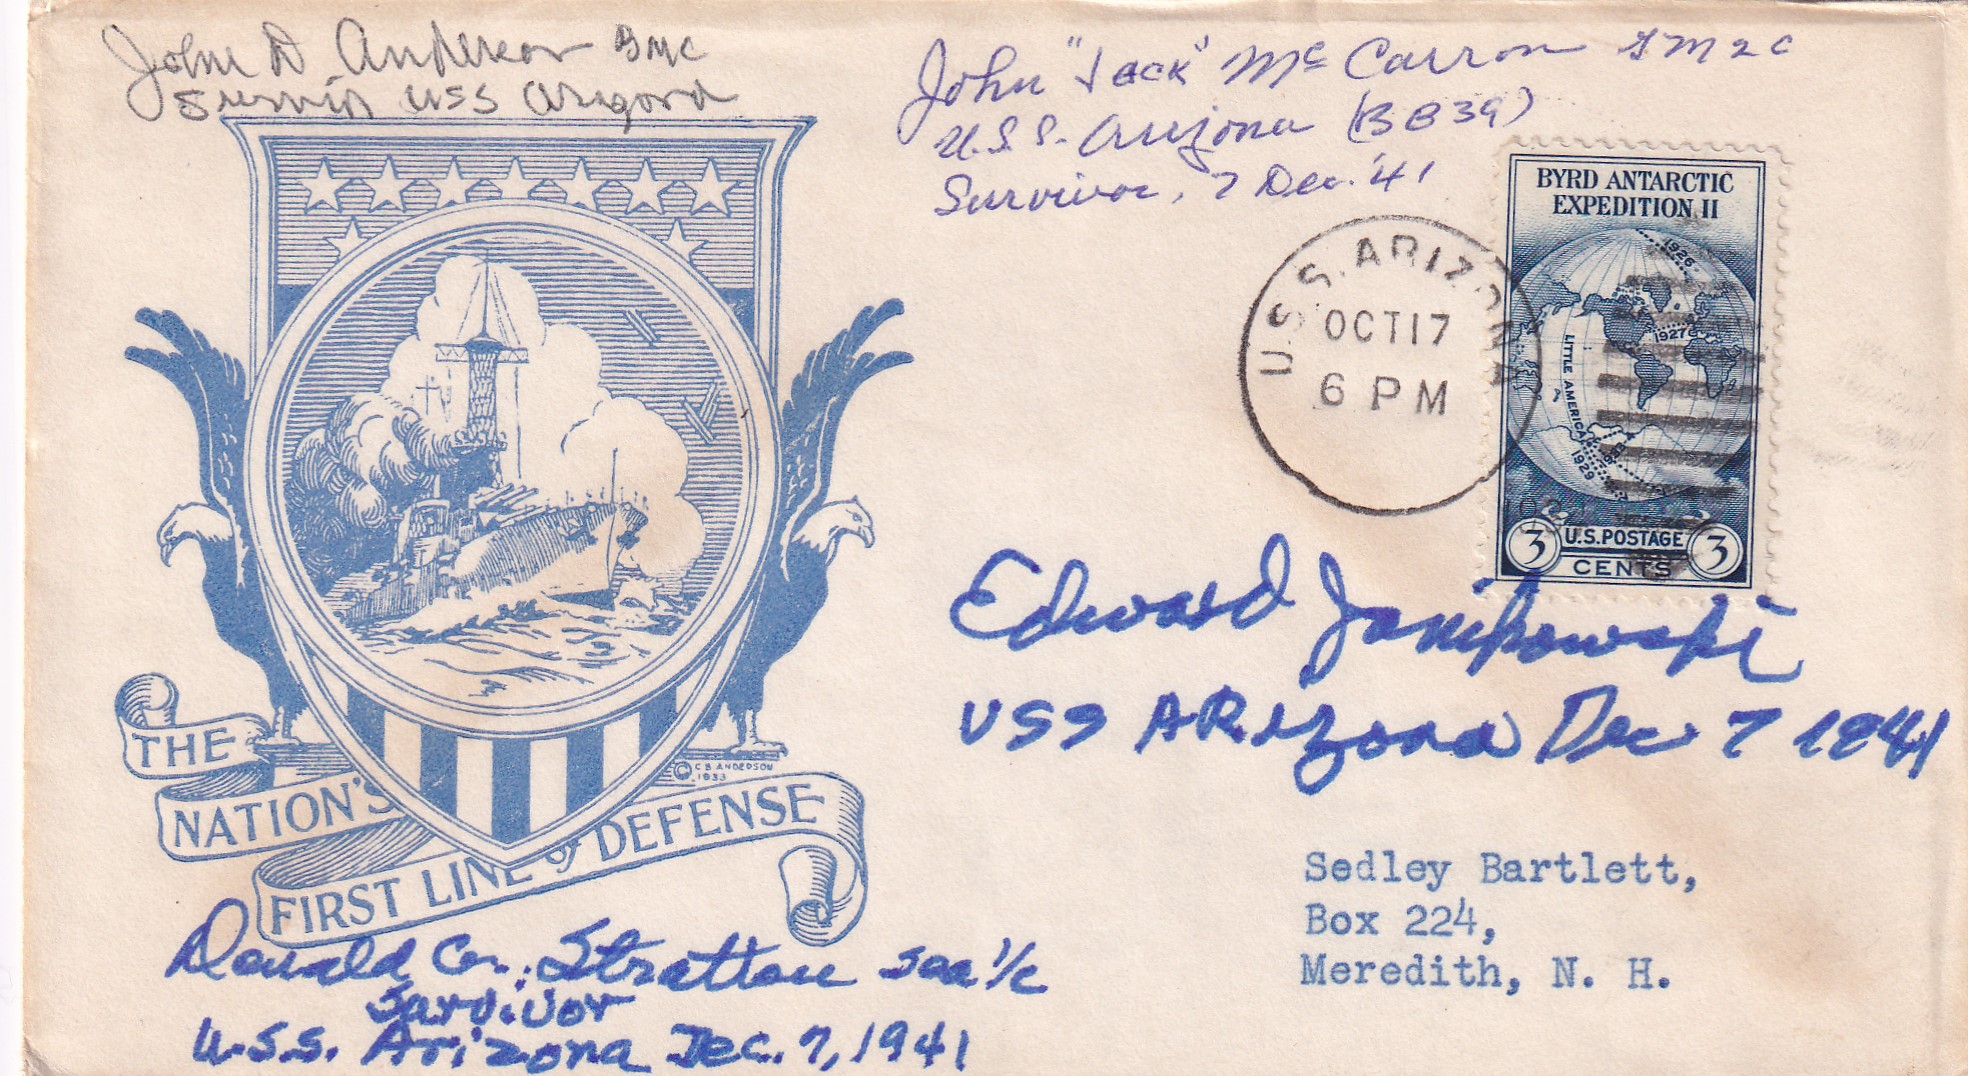 John D Anderson BMC
Survivor USS Arizona
John "Jack" McCarron GM2C
U.S.S. Arizona (BB39)
Survivor, 7 Dec. '41
BYRD ANTARCTIC
EXPEDITION II
1926
1927
LITTLE AMERICA
1929
U.S. POSTAGE
3 CENTS 3
U.S.S. ARIZONA
OCT 17
6 PM
Edward Janikowski
USS ARizona Dec 7 1941
© C B ANDERSON
1933
THE
NATION'S
FIRST LINE of DEFENSE
Sedley Bartlett,
Box 224,
Meredith, N. H.
Donald G. Stratton sea 1/c
Survivor
U.S.S. Arizona Dec. 7, 1941